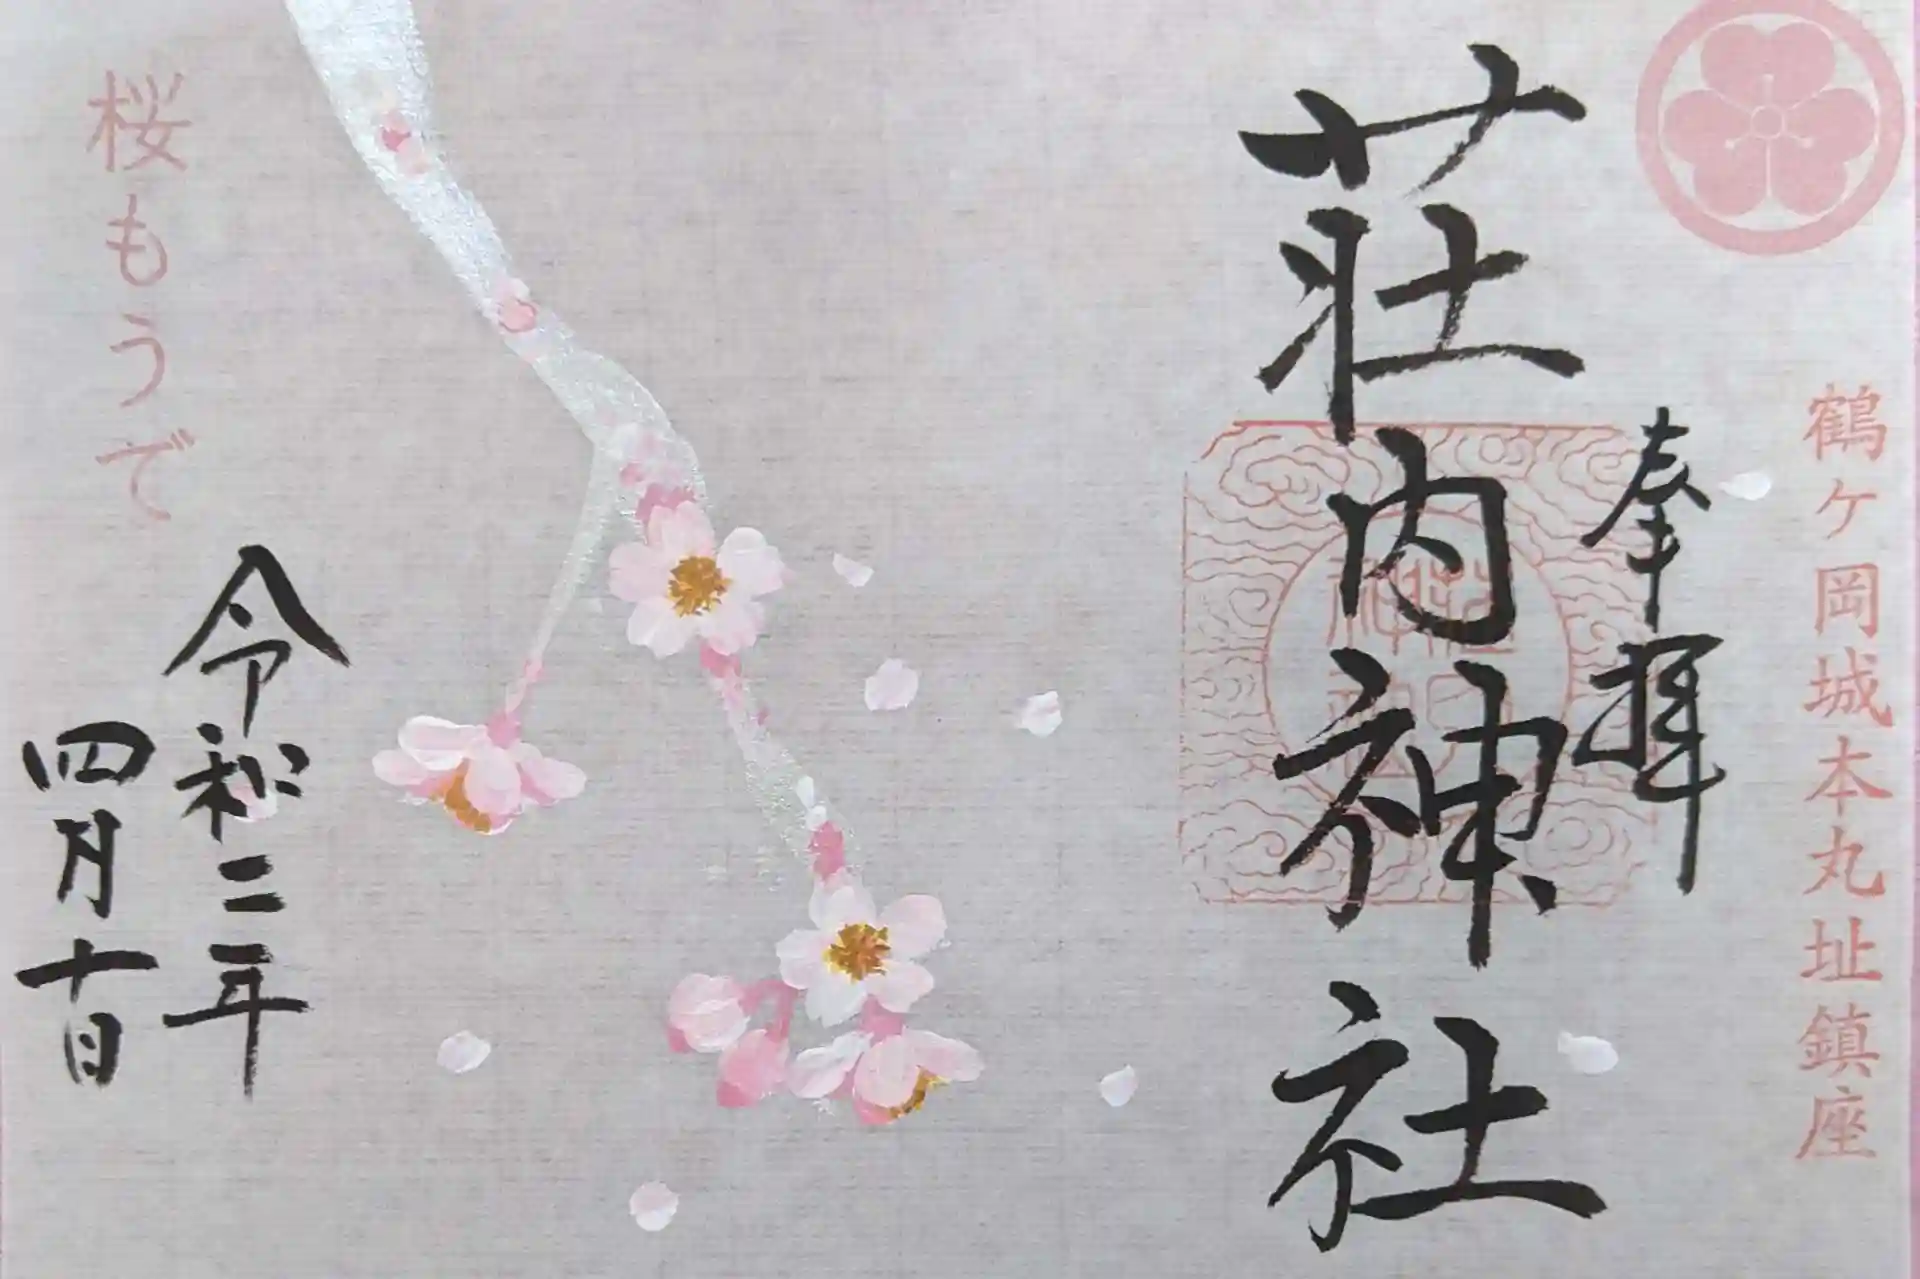 鶴ケ岡城本丸址鎮座
奉拝
荘内神社
桜もうで
令和二年
四月十日